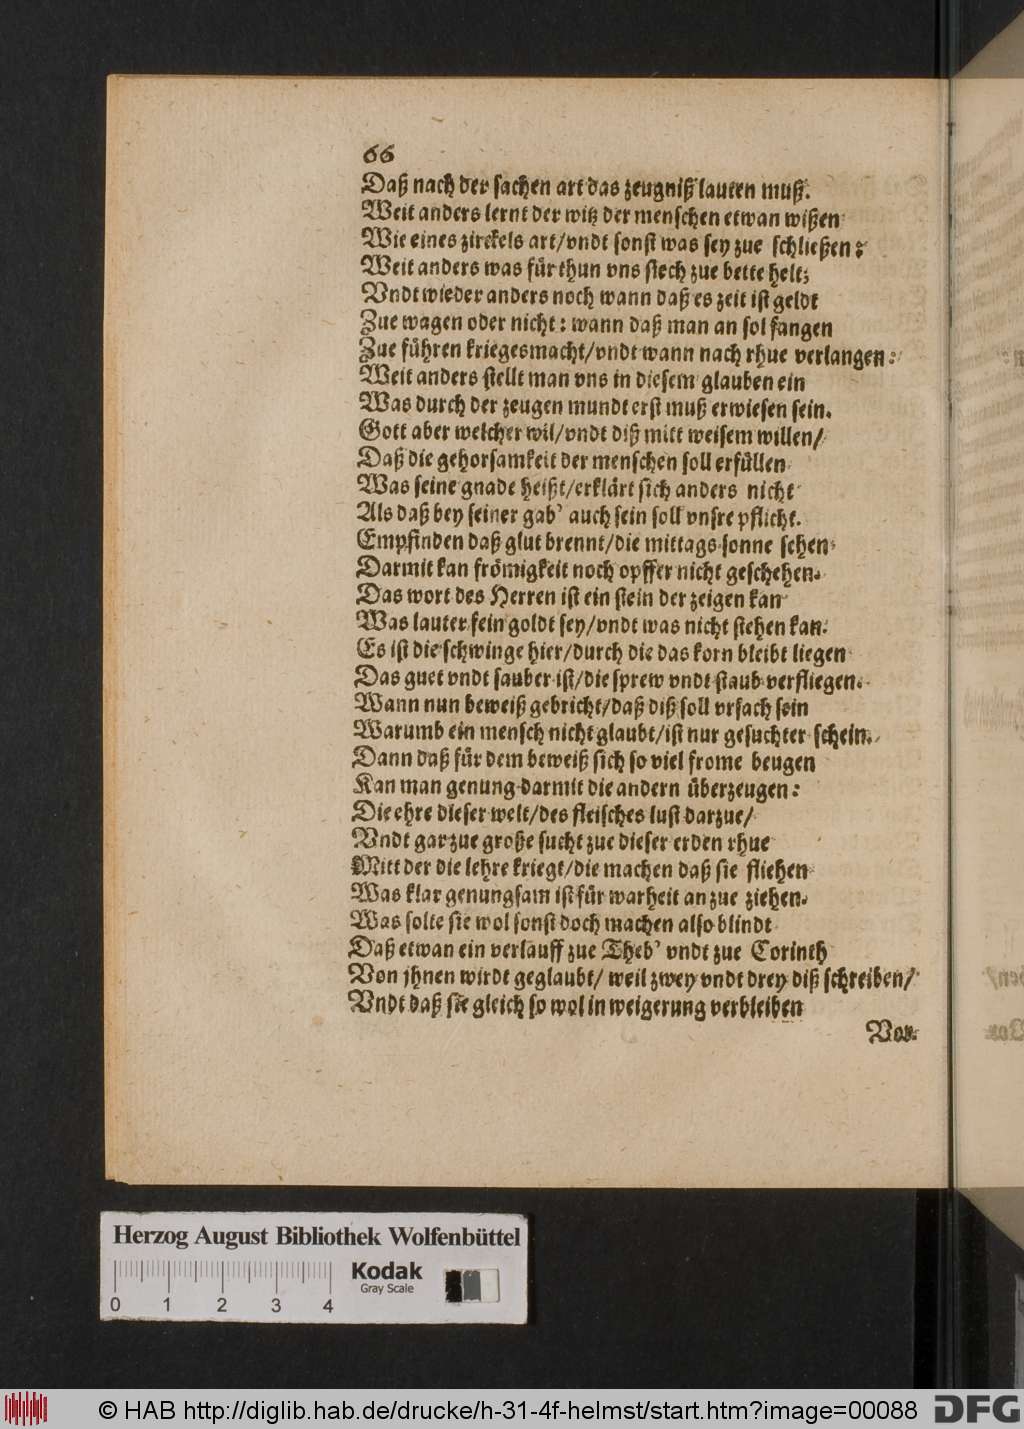 66
Daß nach der sachen art das zeugniß lauten muß.
Weit anders lernt der witz der menschen etwan wißen
Wie eines zirckels art/vndt sonst was sey zue schließen;
Weit anders was für thun vns siech zue bette helt;
Vndt wieder anders noch wann daß es zeit ist geldt
Zue wagen oder nicht: wann daß man an sol fangen
Zue führen kriegesmacht/vndt wann nach rhue verlangen:
Weit anders stellt man vns in diesem glauben ein
Was durch der zeugen mundt erst muß erwiesen sein.
Gott aber welcher wil/vndt diß mitt weisem willen/
Daß die gehorsamkeit der menschen soll erfüllen
Was seine gnade heißt/erklärt sich anders nicht
Als daß bey seiner gab' auch sein soll vnsre pflicht.
Empfinden daß glut brennt/die mittags sonne sehen
Darmit kan frömigkeit noch opffer nicht geschehen.
Das wort des Herren ist ein stein der zeigen kan
Was lauter fein goldt sey/vndt was nicht stehen kan.
Es ist die schwinge hier/durch die das korn bleibt liegen
Das guet vndt sauber ist/die sprew vndt staub verfliegen.
Wann nun beweiß gebricht/daß diß soll vrsach sein
Warumb ein mensch nicht glaubt/ist nur gesuchter schein.
Dann daß für dem beweiß sich so viel frome beugen
Kan man genung darmit die andern überzeugen:
Die ehre dieser welt/des fleisches lust darzue/
Vndt gar zue große sucht zue dieser erden rhue
Mitt der die lehre kriegt/die machen daß sie fliehen
Was klar genungsam ist für warheit an zue ziehen.
Was solte sie wol sonst doch machen also blindt
Daß etwan ein verlauff zue Theb' vndt zue Corinth
Von jhnen wirdt geglaubt/ weil zwey vndt drey diß schreiben/
Vndt daß sie gleich so wol in weigerung verbleiben
Vor.
Herzog August Bibliothek Wolfenbüttel
Kodak
Gray Scale
0 1 2 3 4
© HAB http://diglib.hab.de/drucke/h-31-4f-helmst/start.htm?image=00088
DFG